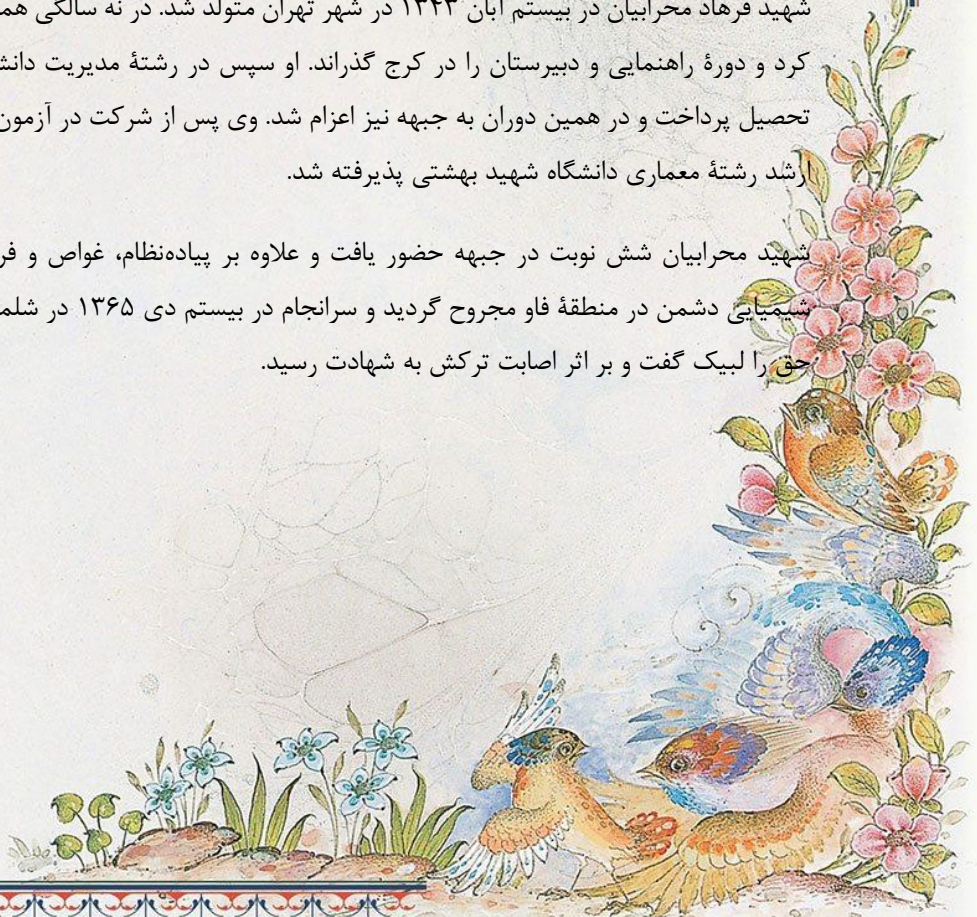 شهید فرهاد محرابیان در بیستم آبان ۱۳۴۳ در شهر تهران متولد شد. در نه سالگی
کرد و دورهٔ راهنمایی و دبیرستان را در کرج گذراند. او سپس در رشتهٔ مدیریت
تحصیل پرداخت و در همین دوران به جبهه نیز اعزام شد. وی پس از شرکت در آزمون
ارشد رشتهٔ معماری دانشگاه شهید بهشتی پذیرفته شد.
شهید محرابیان شش نوبت در جبهه حضور یافت و علاوه بر پیاده‌نظام، غواص و
شیمیایی دشمن در منطقهٔ فاو مجروح گردید و سرانجام در بیستم دی ۱۳۶۵ در
حق را لبیک گفت و بر اثر اصابت ترکش به شهادت رسید.